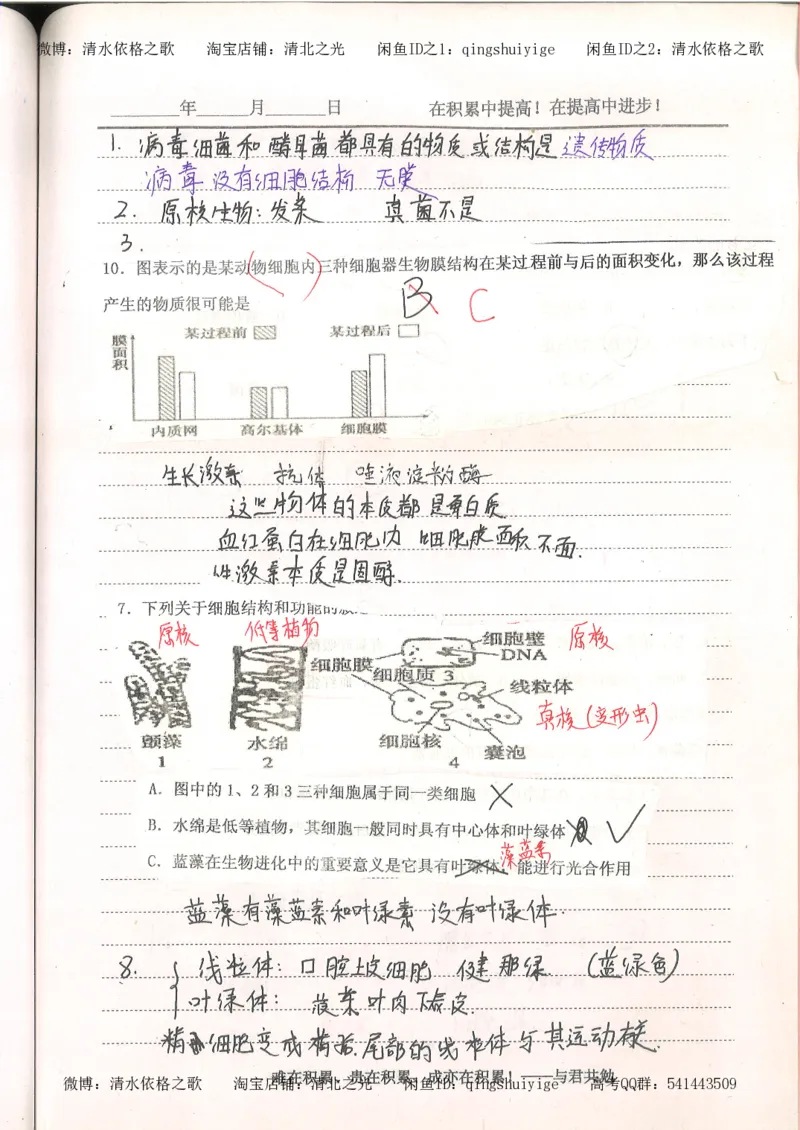 微博：清水依格之歌 淘宝店铺：清北之光 闲鱼ID之1：qingshuiyige 闲鱼ID之2：清水依格之歌
年 月 日 在积累中提高！在提高中进步！
1. 病毒细菌和酵母菌都具有的物质或结构是 遗传物质
病毒没有细胞结构 无膜
2. 原核生物：发菜 真菌不是
3.
10．图表示的是某动物细胞内三种细胞器生物膜结构在某过程前与后的面积变化，那么该过程
产生的物质很可能是 B C
某过程前 某过程后
膜面积
内质网 高尔基体 细胞膜
生长激素 抗体 唾液淀粉酶
这些物体的本质都是蛋白质
血红蛋白在细胞内 细胞膜面积不
性激素本质是固醇.
7．下列关于细胞结构和功能的
原核 低等植物 细胞壁 原核
DNA
细胞膜
细胞质 3
线粒体
真核（变形虫）
颤藻 水绵 细胞核 囊泡
1 2 4
A．图中的 1、2 和 3 三种细胞属于同一类细胞 ×
B．水绵是低等植物，其细胞一般同时具有中心体和叶绿体 ✓
藻蓝素
C．蓝藻在生物进化中的重要意义是它具有叶绿体，能进行光合作用
蓝藻有藻蓝素和叶绿素 没有叶绿体.
8. 线粒体：口腔上皮细胞 健那绿 （蓝绿色）
叶绿体：菠菜叶肉下表皮.
细胞变成 尾部的线粒体与其运动有关.
难在积累，贵在积累，成亦在积累！——与君共勉
微博：清水依格之歌 淘宝店铺：清北之光 闲鱼ID之1：qingshuiyige 高考QQ群：541443509